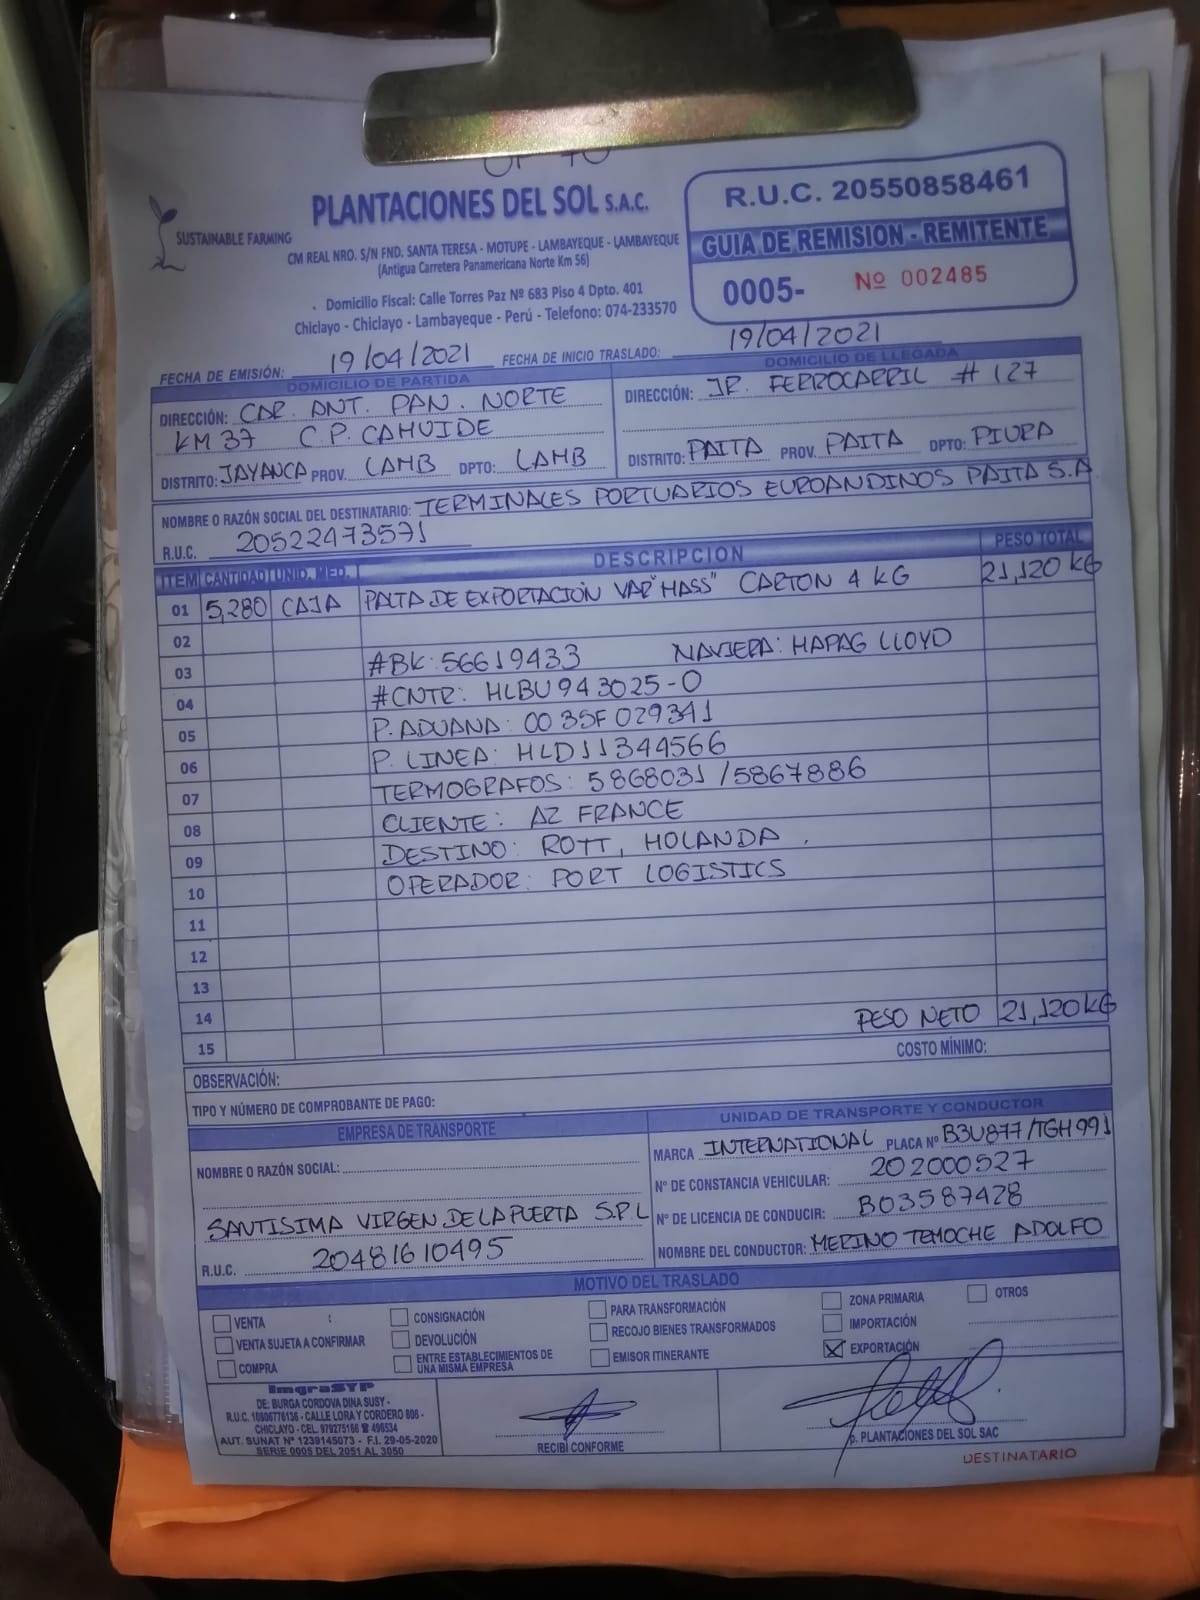 PLANTACIONES DEL SOL S.A.C.
SUSTAINABLE FARMING
CM REAL NRO. S/N FND. SANTA TERESA - MOTUPE - LAMBAYEQUE - LAMBAYEQUE
(Antigua Carretera Panamericana Norte Km 56)
Domicilio Fiscal: Calle Torres Paz Nº 683 Piso 4 Dpto. 401
Chiclayo - Chiclayo - Lambayeque - Perú - Telefono: 074-233570
R.U.C. 20550858461
GUIA DE REMISION - REMITENTE
0005- Nº 002485
FECHA DE EMISIÓN: 19/04/2021 FECHA DE INICIO TRASLADO: 19/04/2021
DOMICILIO DE PARTIDA
DIRECCIÓN: CAR. ANT. PAN. NORTE
KM 37 C.P. CAHUIDE
DISTRITO: JAYANCA PROV. LAMB DPTO: LAMB
DOMICILIO DE LLEGADA
DIRECCIÓN: JR. FERROCARRIL # 127
DISTRITO: PAITA PROV. PAITA DPTO: PIURA
NOMBRE O RAZÓN SOCIAL DEL DESTINATARIO: TERMINALES PORTUARIOS EUROANDINOS PAITA S.A
R.U.C. 20522473571
ITEM CANTIDAD UNID. MED. DESCRIPCION PESO TOTAL
01 5,280 CAJA PALTA DE EXPORTACIÓN VAR "HASS" CARTON 4 KG 21,120 KG
02
03 #BK: 56619433 NAVIERA: HAPAG LLOYD
04 #CNTR: HLBU 943025-0
05 P. ADUANA: 0035F029341
06 P. LINEA: HLD11344566
07 TERMOGRAFOS: 5868031 / 5867886
08 CLIENTE: AZ FRANCE
09 DESTINO: ROTT, HOLANDA.
10 OPERADOR: PORT LOGISTICS
11
12
13
14 PESO NETO 21,120 KG
15
COSTO MÍNIMO:
OBSERVACIÓN:
TIPO Y NÚMERO DE COMPROBANTE DE PAGO:
EMPRESA DE TRANSPORTE
NOMBRE O RAZÓN SOCIAL:
SANTISIMA VIRGEN DE LA PUERTA S.R.L
R.U.C. 20481610495
UNIDAD DE TRANSPORTE Y CONDUCTOR
MARCA INTERNATIONAL PLACA Nº B3U877/TGH991
Nº DE CONSTANCIA VEHICULAR: 202000527
Nº DE LICENCIA DE CONDUCIR: B03587428
NOMBRE DEL CONDUCTOR: MERINO TEMOCHE ADOLFO
MOTIVO DEL TRASLADO
VENTA :
VENTA SUJETA A CONFIRMAR
COMPRA
CONSIGNACIÓN
DEVOLUCIÓN
ENTRE ESTABLECIMIENTOS DE
UNA MISMA EMPRESA
PARA TRANSFORMACIÓN
RECOJO BIENES TRANSFORMADOS
EMISOR ITINERANTE
ZONA PRIMARIA
IMPORTACIÓN
X EXPORTACIÓN
OTROS
ImgraSYP
DE: BURGA CORDOVA DINA SUSY -
R.U.C. 16806776136 - CALLE LORA Y CORDERO 806 -
CHICLAYO - CEL. 979275166 ☎ 496534
AUT. SUNAT Nº 1239145073 - F.I. 29-05-2020
SERIE 0005 DEL 2051 AL 3050
RECIBÍ CONFORME
p. PLANTACIONES DEL SOL SAC
DESTINATARIO